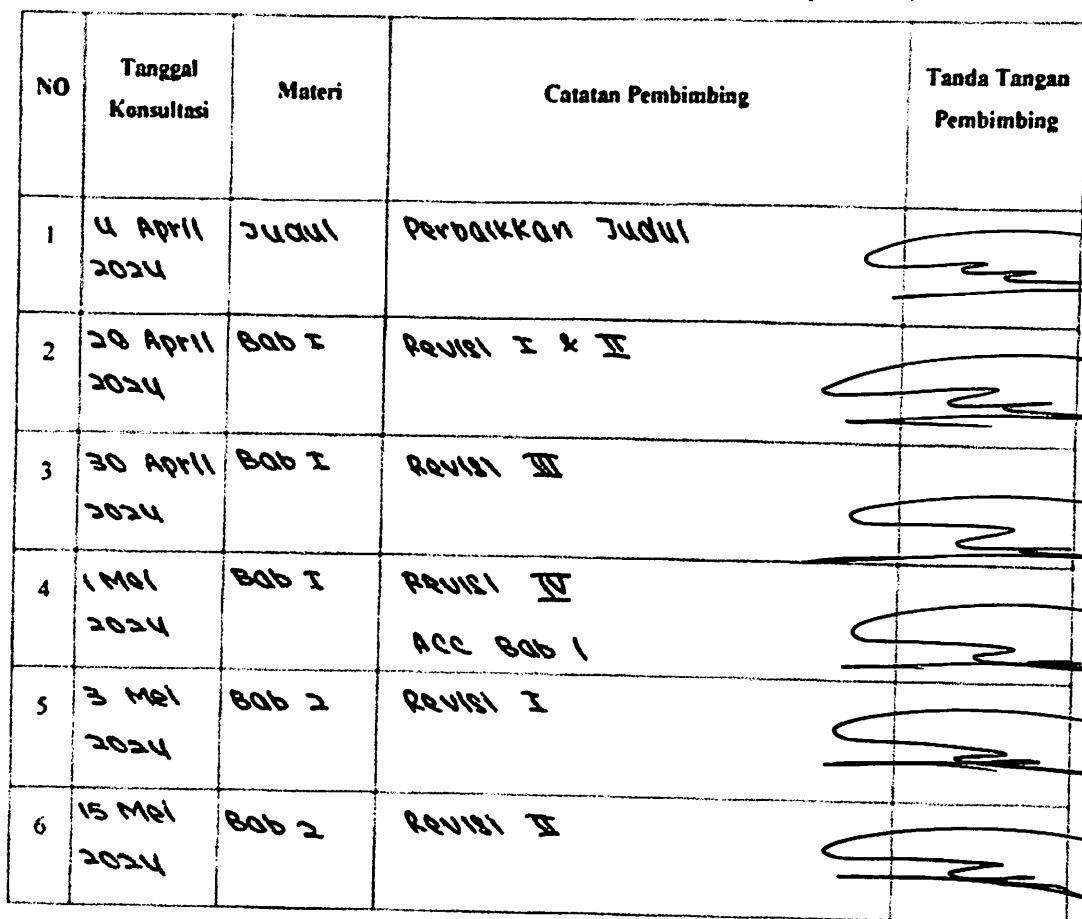 NO Tanggal Konsultasi Materi Catatan Pembimbing Tanda Tangan Pembimbing
1 4 April 2024 Judul Perbaikkan Judul
2 April 2024 Bab I Revisi I & II
3 30 April 2024 Bab I Revisi III
4 1 Mei 2024 Bab I Revisi IV
ACC Bab 1
5 3 Mei 2024 Bab 2 Revisi I
6 15 Mei 2024 Bab 2 Revisi II